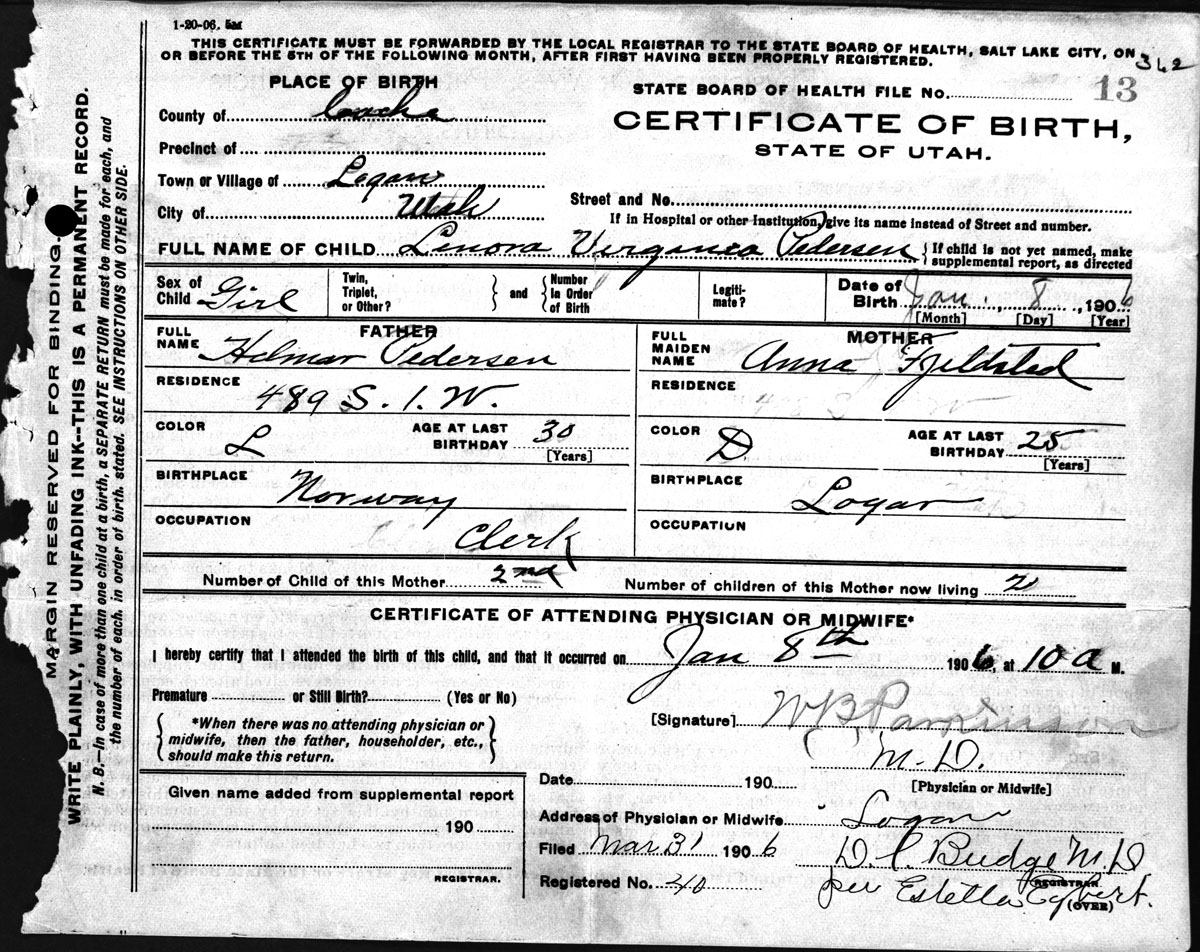 1-20-06. 5M
THIS CERTIFICATE MUST BE FORWARDED BY THE LOCAL REGISTRAR TO THE STATE BOARD OF HEALTH, SALT LAKE CITY, ON
OR BEFORE THE 5TH OF THE FOLLOWING MONTH, AFTER FIRST HAVING BEEN PROPERLY REGISTERED.
362
PLACE OF BIRTH
STATE BOARD OF HEALTH FILE No. 13
County of Cache
CERTIFICATE OF BIRTH,
STATE OF UTAH.
Precinct of
Town or Village of Logan
City of Utah
Street and No.
If in Hospital or other Institution, give its name instead of Street and number.
FULL NAME OF CHILD Lenora Virginia Pedersen { If child is not yet named, make
supplemental report, as directed
Sex of Child Girl
Twin, Triplet, or Other? } and { Number In Order of Birth
Legiti-mate?
Date of Birth Jan. 8, 1906
[Month] [Day] [Year]
FATHER
FULL NAME Helmar Pedersen
RESIDENCE 489 S. 1. W.
COLOR L
AGE AT LAST BIRTHDAY 30 [Years]
BIRTHPLACE Norway
OCCUPATION Clerk
MOTHER
FULL MAIDEN NAME Anna Fjeldsted
RESIDENCE
COLOR D
AGE AT LAST BIRTHDAY 25 [Years]
BIRTHPLACE Logan
OCCUPATION
Number of Child of this Mother 2nd
Number of children of this Mother now living 2
CERTIFICATE OF ATTENDING PHYSICIAN OR MIDWIFE*
I hereby certify that I attended the birth of this child, and that it occurred on Jan 8th 1906, at 10 a M.
Premature or Still Birth? (Yes or No)
{ *When there was no attending physician or
midwife, then the father, householder, etc.,
should make this return. }
[Signature] W B Parkinson
M.D.
[Physician or Midwife]
Date 190
Given name added from supplemental report
190
REGISTRAR.
Address of Physician or Midwife Logan
Filed Mar 31 1906 D. C. Budge M.D
REGISTRAR
Registered No. 40 per Estella Egbert.
(OVER)
MARGIN RESERVED FOR BINDING.
WRITE PLAINLY, WITH UNFADING INK--THIS IS A PERMANENT RECORD.
N. B.—In case of more than one child at a birth, a SEPARATE RETURN must be made for each, and
the number of each, in order of birth, stated. SEE INSTRUCTIONS ON OTHER SIDE.